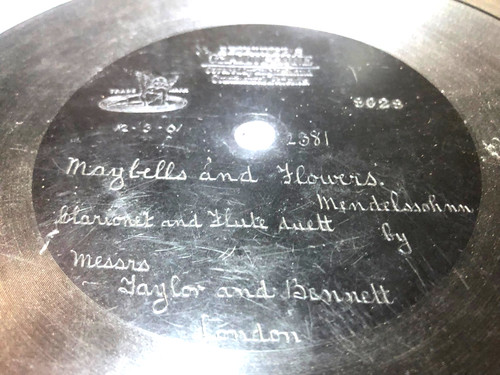 TRADE MARK
9029
12-3-01
2381
Maybells and Flowers.
Mendelssohnn
Clarionet and Flute duett
by
Messrs
Taylor and Bennett
London